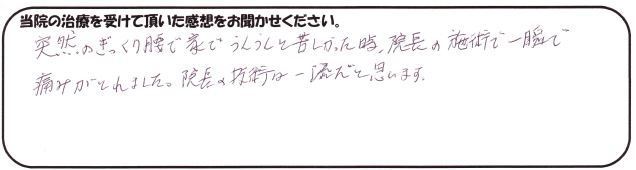 当院の治療を受けて頂いた感想をお聞かせください。
突然のぎっくり腰で家でうんうんと苦しかった時、院長の施術で一瞬で
痛みがとれました。院長の技術は一流だと思います。